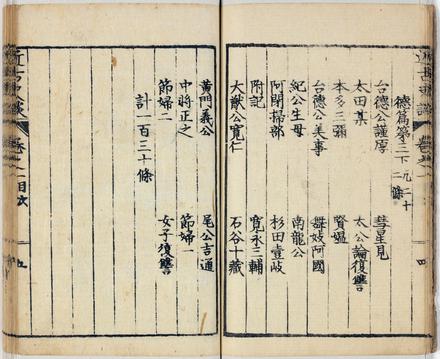 德篇第三下 凡二十二條
台德公謹厚 彗星見
太田某 太公論復讐
本多三彌 賢媼
台德公美事 舞妓阿國
紀公生母 南龍公
阿閉掃部 杉田壹岐
附記 寬永三輔
大猷公寬仁 石谷十藏
黃門義公 尾公吉通
中將正之 節婦一
節婦二 女子復讐
計一百三十條
近古史談 卷之一 目次 五